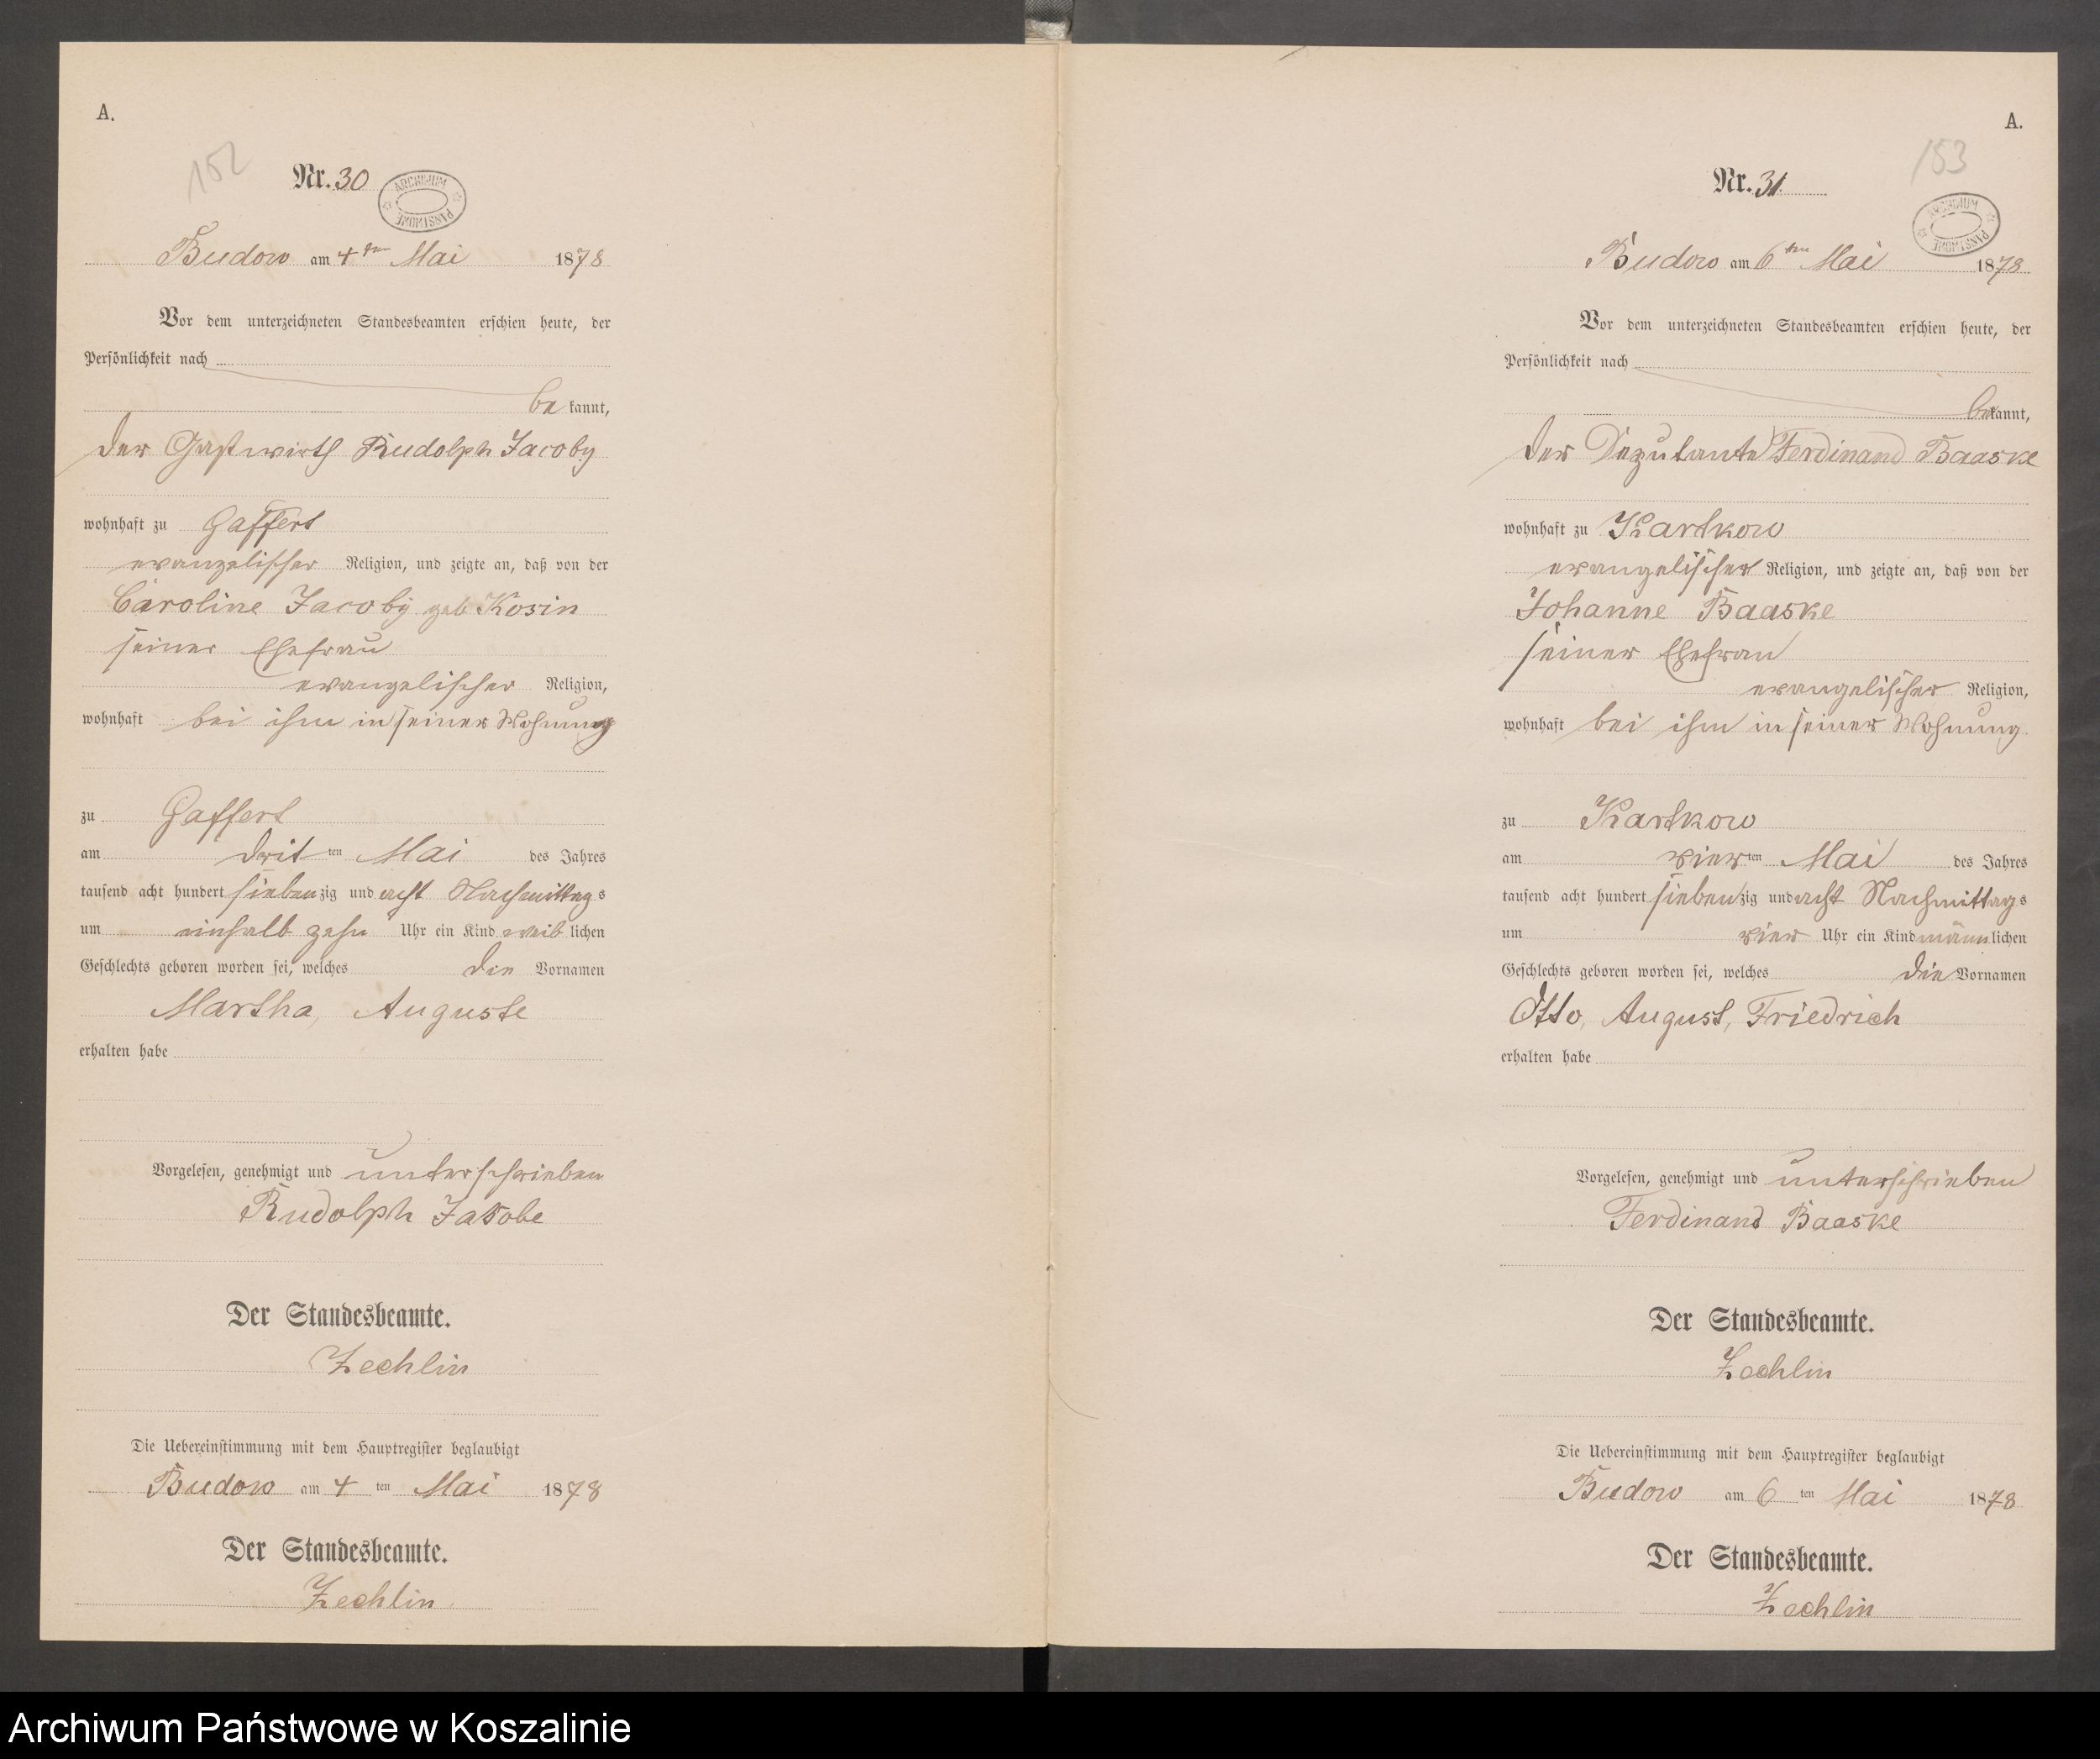 A.
152
Nr. 30
ARCHIWUM PAŃSTWOWE
Budow am 4ten Mai 1878
Vor dem unterzeichneten Standesbeamten erschien heute, der
Persönlichkeit nach
be kannt,
der Gastwirth Rudolph Jacoby
wohnhaft zu Gaffert
evangelischer Religion, und zeigte an, daß von der
Caroline Jacoby geb Kosin
seiner Ehefrau
evangelischer Religion,
wohnhaft bei ihm in seiner Wohnung
zu Gaffert
am dritten Mai des Jahres
tausend acht hundert siebenzig und acht Nachmittags
um einhalb zehn Uhr ein Kind weiblichen
Geschlechts geboren worden sei, welches die Vornamen
Martha, Auguste
erhalten habe
Vorgelesen, genehmigt und unterschrieben
Rudolph Jakobe
Der Standesbeamte.
Zechlin
Die Uebereinstimmung mit dem Hauptregister beglaubigt
Budow am 4 ten Mai 1878
Der Standesbeamte.
Zechlin
A.
153
Nr. 31.
ARCHIWUM PAŃSTWOWE
Budow am 6ten Mai 1878
Vor dem unterzeichneten Standesbeamten erschien heute, der
Persönlichkeit nach
bekannt,
der Deputante Ferdinand Baaske
wohnhaft zu Kartkow
evangelischer Religion, und zeigte an, daß von der
Johanne Baaske
seiner Ehefrau
evangelischer Religion,
wohnhaft bei ihm in seiner Wohnung
zu Kartkow
am vierten Mai des Jahres
tausend acht hundert siebenzig und acht Nachmittags
um vier Uhr ein Kind männlichen
Geschlechts geboren worden sei, welches die Vornamen
Otto, August, Friedrich
erhalten habe
Vorgelesen, genehmigt und unterschrieben
Ferdinand Baaske
Der Standesbeamte.
Zechlin
Die Uebereinstimmung mit dem Hauptregister beglaubigt
Budow am 6 ten Mai 1878
Der Standesbeamte.
Zechlin
Archiwum Państwowe w Koszalinie